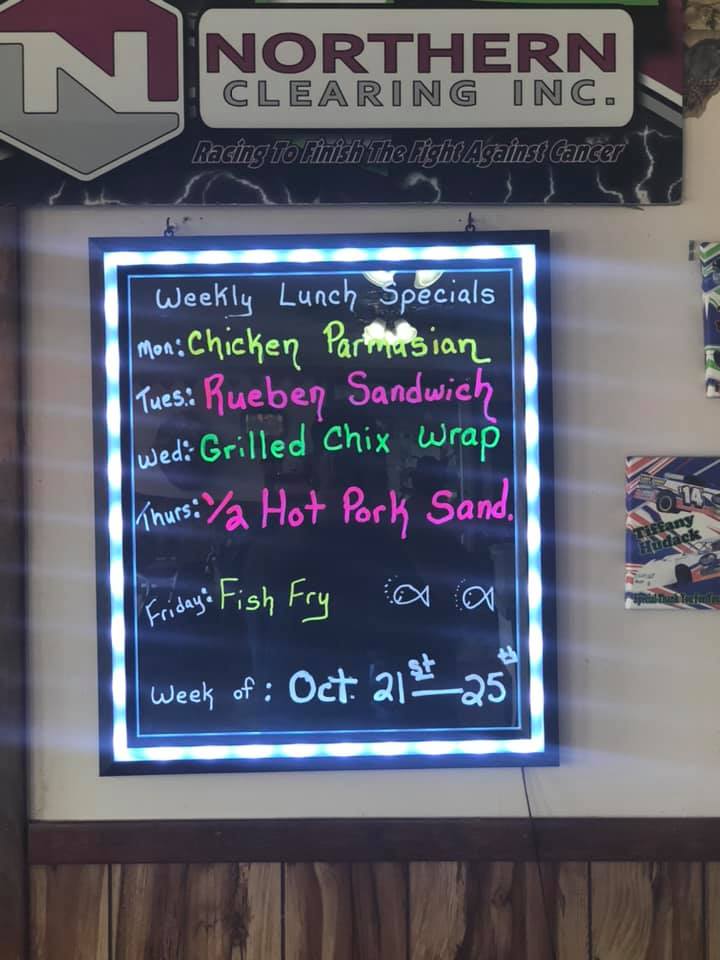 NORTHERN
CLEARING INC.
Racing To Finish The Fight Against Cancer
Weekly Lunch Specials
Mon: Chicken Parmasian
Tues: Rueben Sandwich
Wed: Grilled Chix Wrap
Thurs: 1/2 Hot Pork Sand.
Friday: Fish Fry
Week of: Oct. 21st—25th
14
Tiffany
Hudack
Special Thank You For